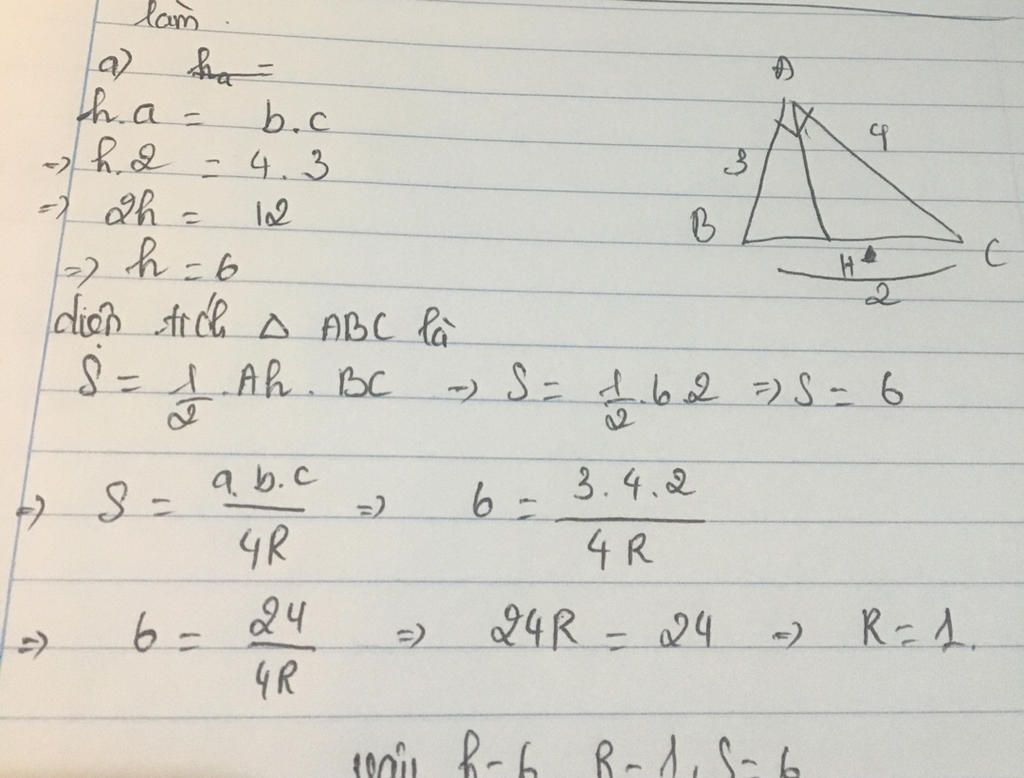 làm.
a) ha =
h.a = b.c
=> h.2 = 4.3
=> 2h = 12
=> h = 6
diện tích △ ABC là
S = 1/2 . Ah . BC => S = 1/2 . 6 . 2 => S = 6
=> S = a.b.c / 4R => 6 = 3.4.2 / 4R
=> 6 = 24 / 4R => 24R = 24 => R = 1.
h = 6 R = 1, S = 6
A
3
4
B
H
C
2